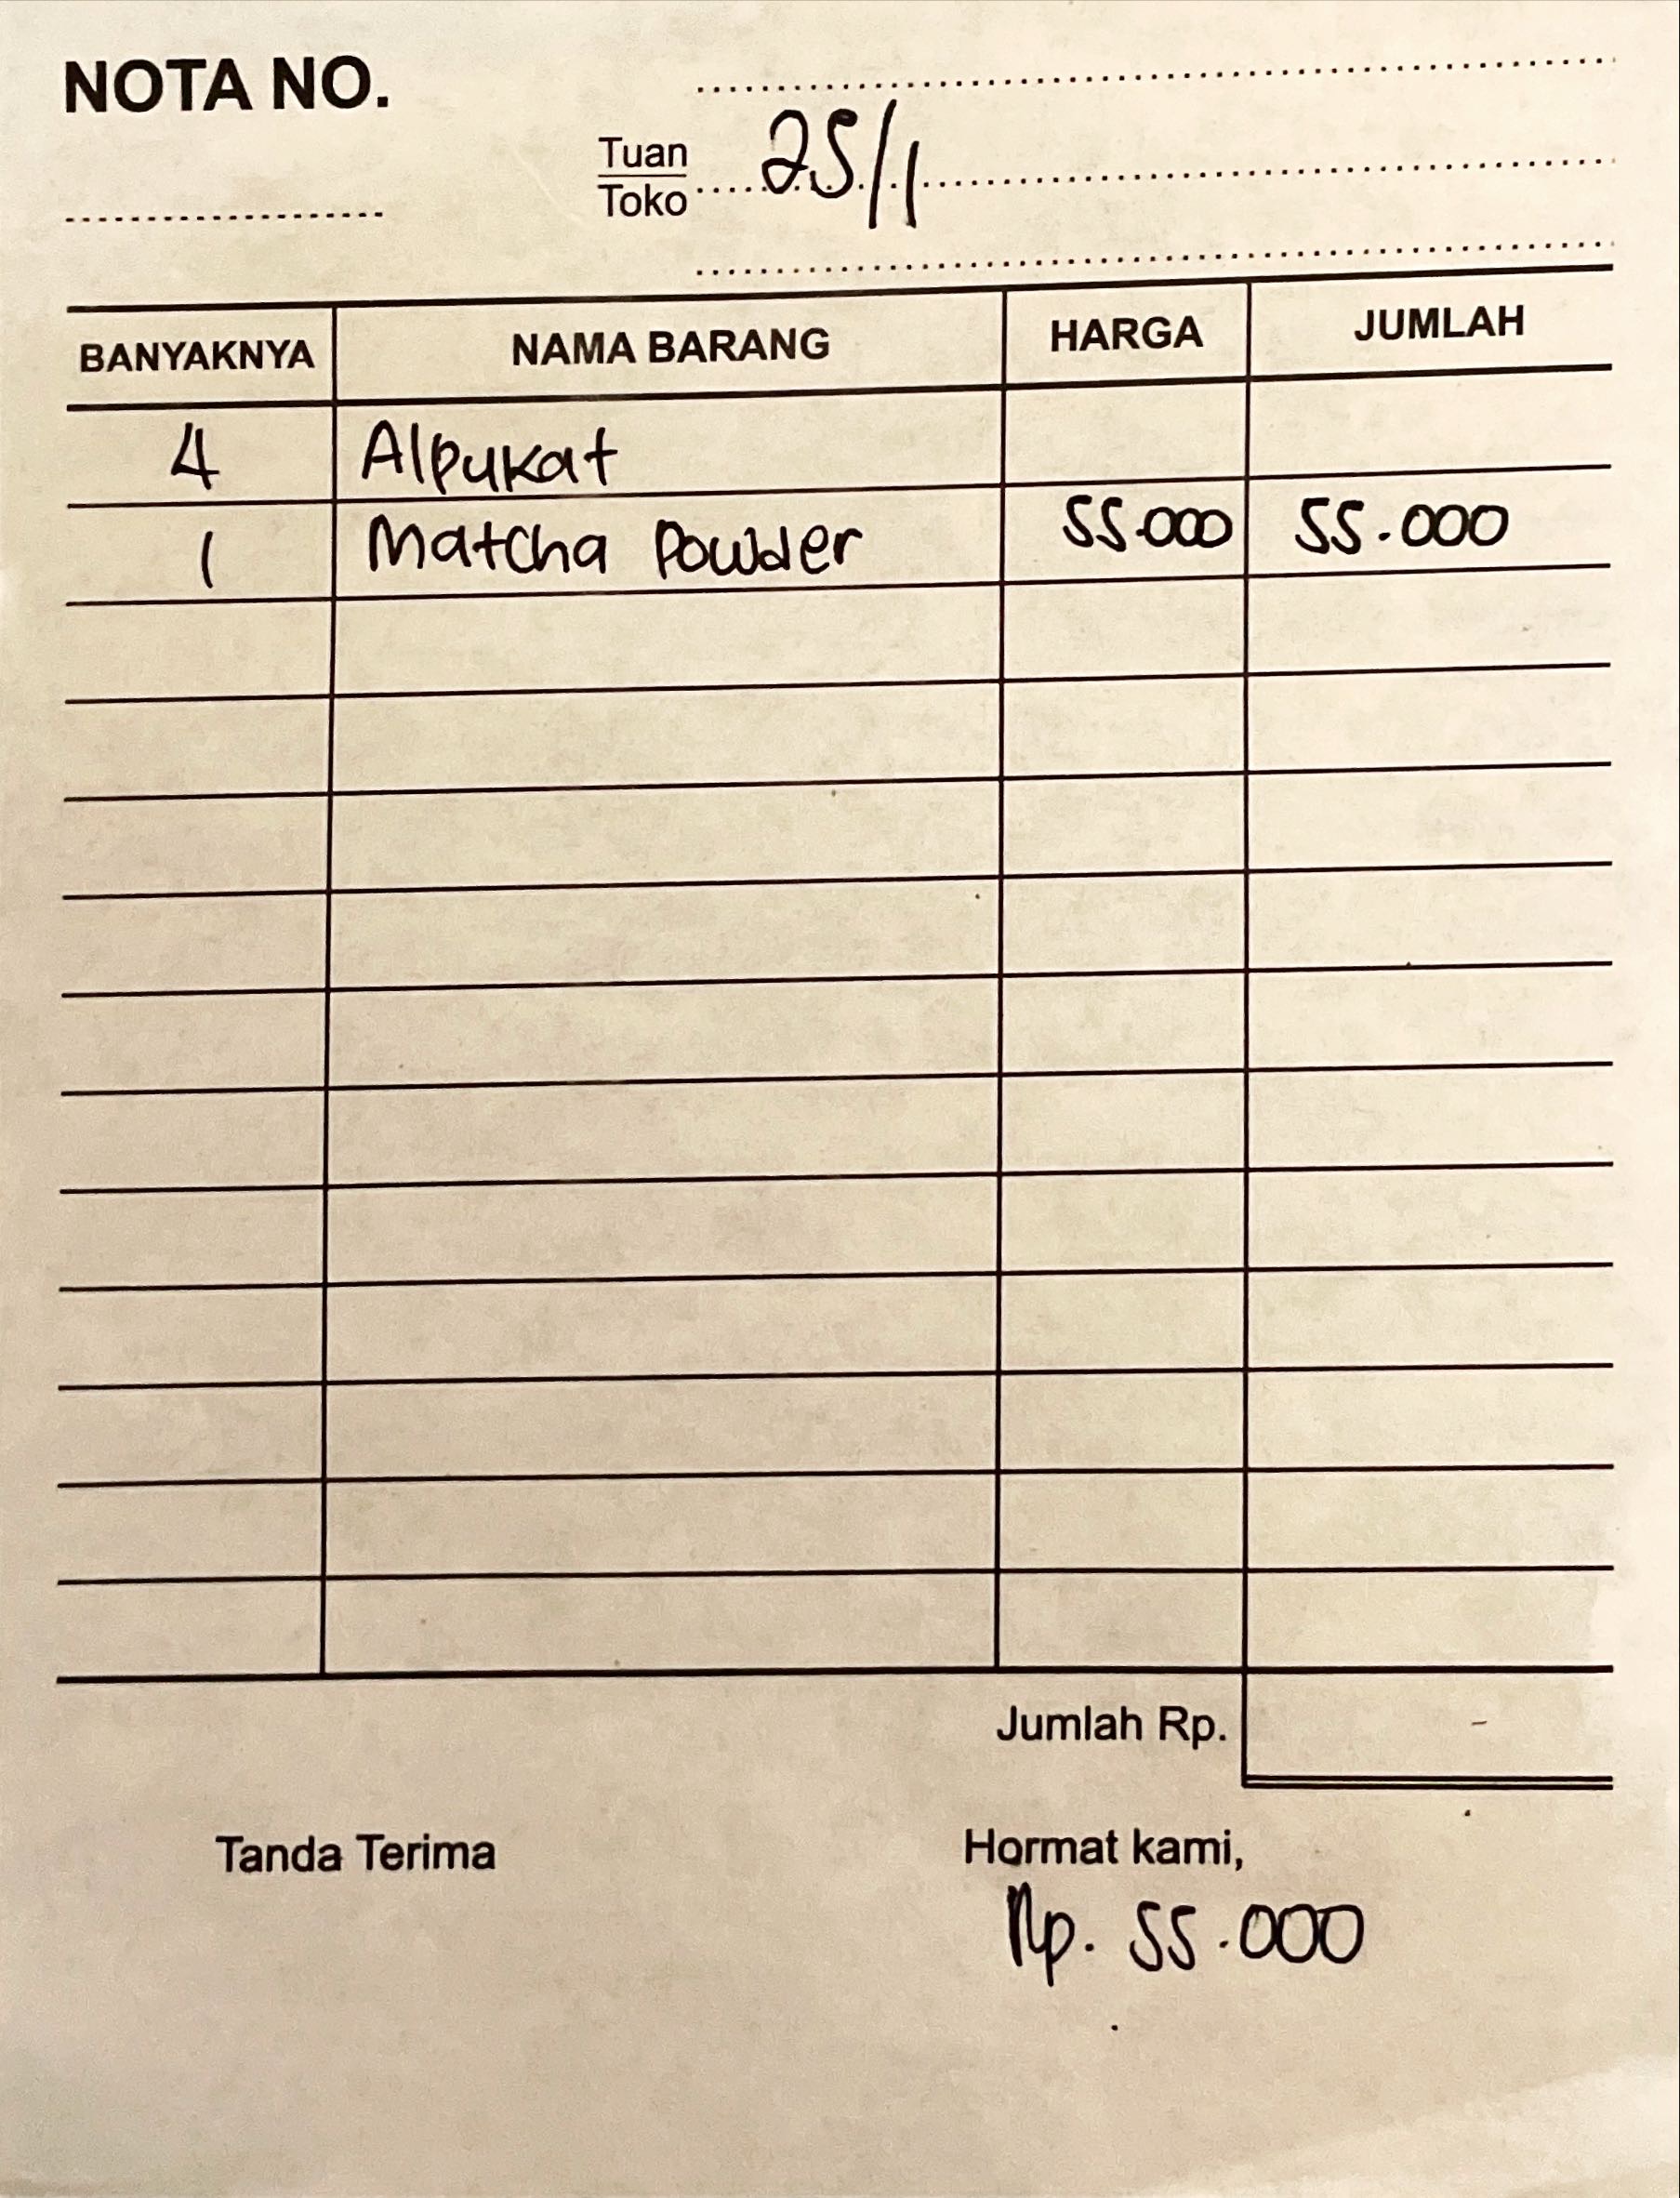 NOTA NO.
Tuan
Toko 25/1
BANYAKNYA NAMA BARANG HARGA JUMLAH
4 Alpukat
1 Matcha Powder 55.000 55.000
Jumlah Rp. -
Tanda Terima Hormat kami,
Rp. 55.000